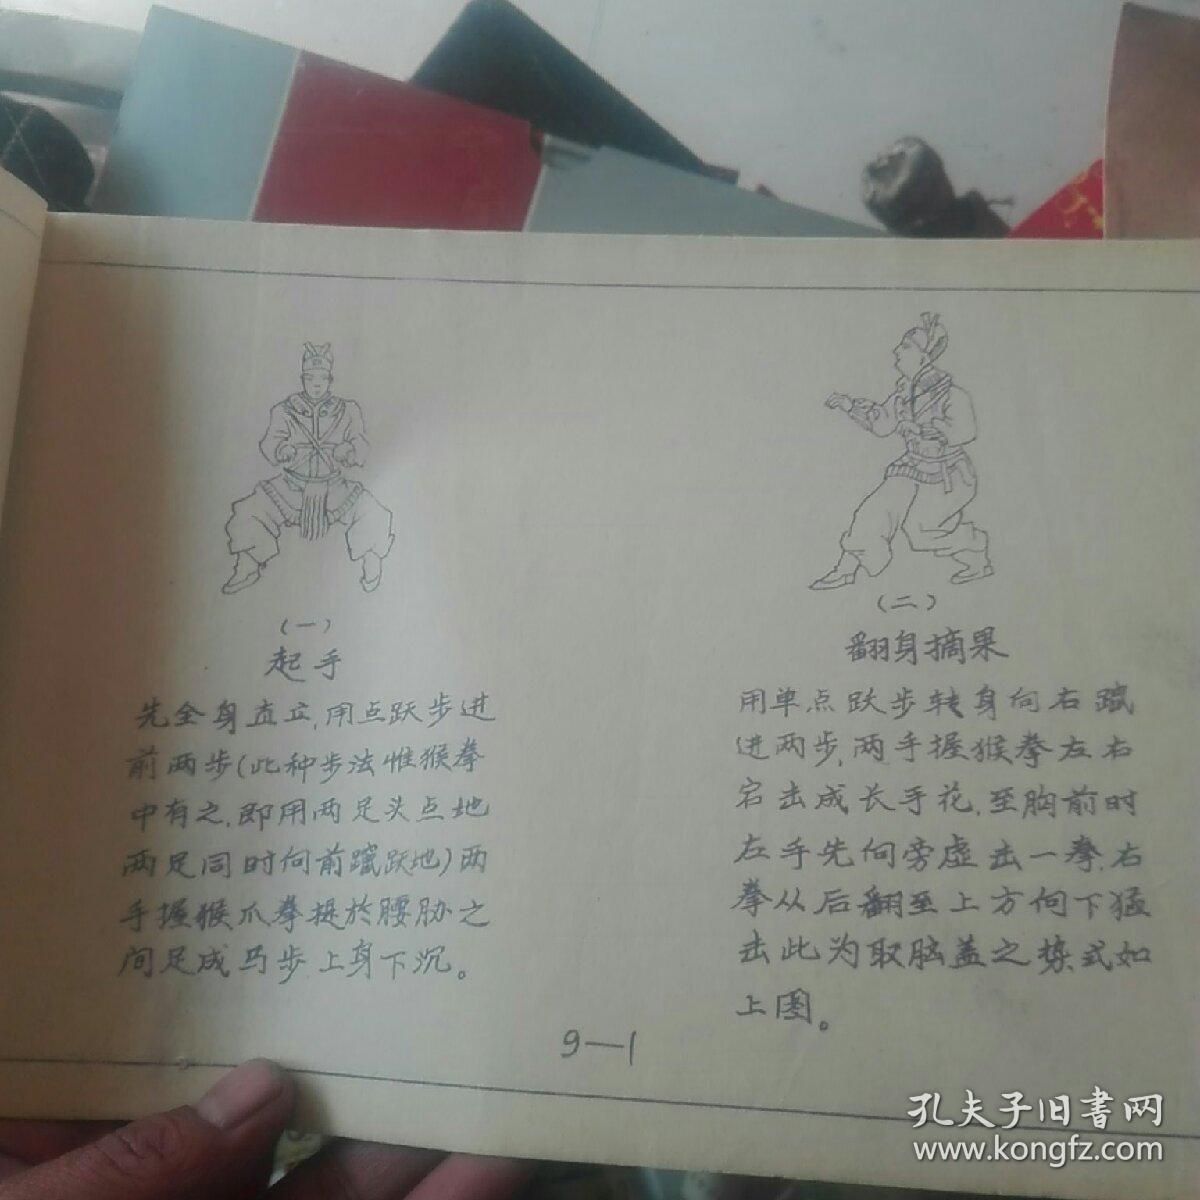 (一)
起手
先全身直立,用点跃步进
前两步(此种步法惟猴拳
中有之.即用两足头点地
两足同时向前蹿跃地)两
手握猴爪拳提於腰胁之
间足成马步上身下沉。
(二)
翻身摘果
用单点跃步转身向右蹿
进两步,两手握猴拳左右
宕击成长手花.至胸前时
左手先向旁虚击一拳.右
拳从后翻至上方向下猛
击此为取脑盖之拣式如
上图。
9—1
孔夫子旧書网
www.kongfz.com